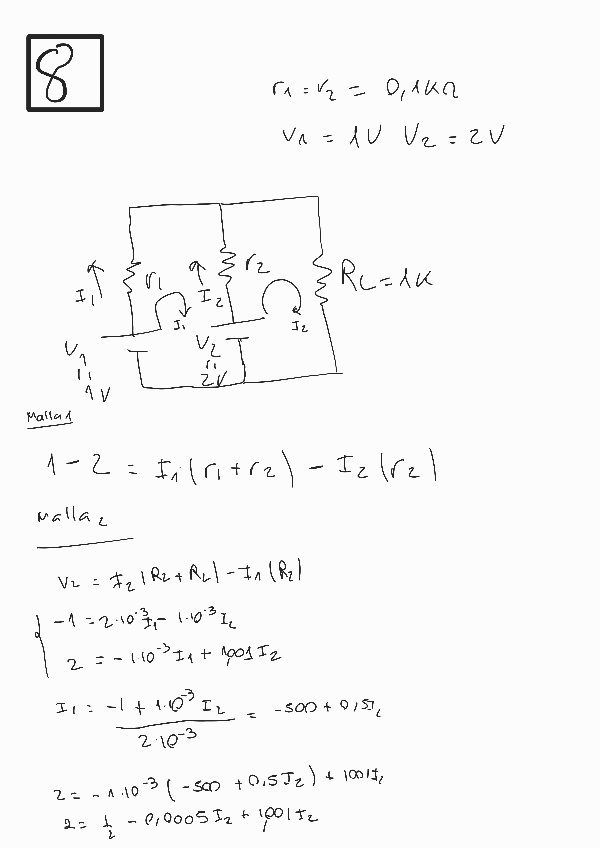 8
r1 = r2 = 0,1KΩ
V1 = 1V V2 = 2V
I1 r1 I2 r2 RL = 1K
I1 I2
V1 = 1V
V2 = 2V
Malla 1
1 - 2 = I1 (r1 + r2) - I2 (r2)
Malla 2
V2 = I2 (R2 + RL) - I1 (R2)
-1 = 2·10⁻³ I1 - 1·10⁻³ I2
2 = -1·10⁻³ I1 + 1,001 I2
I1 = -1 + 1·10⁻³ I2 / 2·10⁻³ = -500 + 0,5 I2
2 = -1·10⁻³ (-500 + 0,5 I2) + 1001 I2
2 = 1/2 - 0,0005 I2 + 1,001 I2